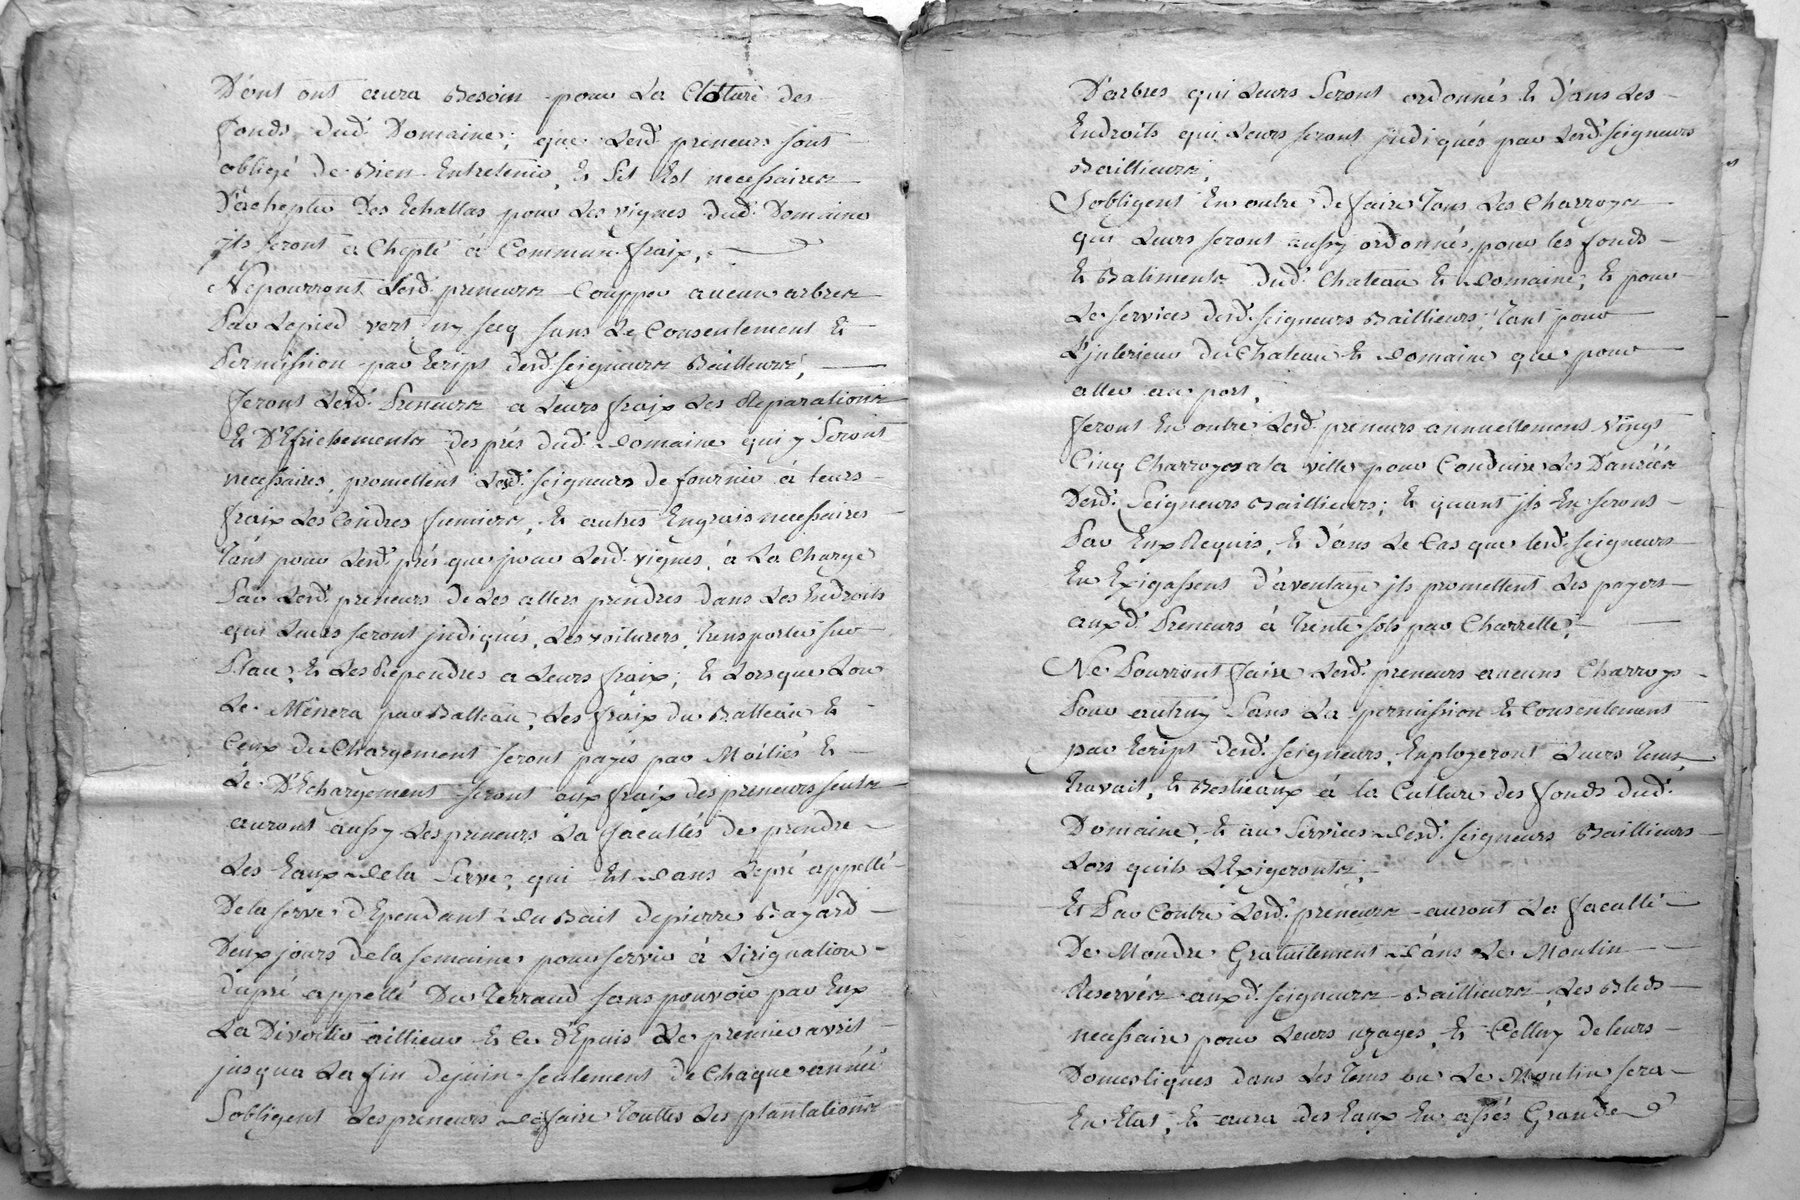 D'ont ont aura Besoin pour La Cloture des
fonds dud. Domaine; que Lesd. preneurs sont
obligé de Bien Entretenir, Et Sil Est necessaires
D'achepter Des Echallas pour Les vignes dud. Domaine
jls seront a Chepté à Commun fraix,
Ne pourront Lesd. preneurs Coupper aucun arbres
Par Le pied vert ny secq sans Le Consentement Et
Permission par Ecript desd. seigneurs Bailleurs,
feront Lesd. Preneurs a Leurs fraix Les Reparations
Et D'Efrichements des prés dud. Domaine qui y Seront
necessaires, promettent Lesd. seigneurs de fournir à leurs
fraix Les Cendres fumiers, Et autres Engrais necessaires
Tant pour Lesd. prés que pour Lesd. vignes, à La Charge
Par Lesd. preneurs de Les allers prendres dans Les Endroits
qui Leurs seront jndiqués, Les voiturers, Transporter sur
Place, Et Les Rependres a Leurs fraix; Et Lorsque Lon
Le Menera par Batteau, Les fraix du Batteau Et
Ceux de Chargement seront payés par Moitiés Et
Le D'Echargement seront aux fraix des preneurs seuls
auront aussy Les preneurs La facultés de prendre
Les Eaux de la Serve, qui Est dans Le pré appellé
De la serve d'Ependant du Bail de pierre Bayard
Deux jours de la semaine pour servir à Lirigation
du pré appellé Du Terraud sans pouvoir par Eux
La Divertir aillieur Et Ce d'Epuis Le premier avril
jusqua La fin de juin seulement de Chaque année
Sobligent Les preneurs de faire Touttes Les plantations
D'arbres qui Leurs Seront ordonnés Et d'ans Les
Endroits qui Leurs seront jndiqués par Lesd. seigneurs
Baillieurs;
Sobligent En outre de faire Tous Les Charroys
qui Leurs seront aussy ordonnés, pour les fonds
Et Batiments dud. Chateau Et Domaine; Et pour
Le services desd. seigneurs Baillieurs, Tant pour
L'jnterieur du Chateau Et Domaine que pour
aller au port,
feront En outre Lesd. preneurs annuellement Vingt
Cinq Charroyes a la ville pour Conduire Les Danrées
Desd. Seigneurs Baillieurs; Et quant jls En seront
Par Eux Requis, Et d'ans Le Cas que lesd. seigneurs
En Exigassent d'aventage jls promettent Les payers
auxd. Preneurs à Trente sols par Charrette,
Ne Pourront faire Lesd. preneurs aucuns Charroys
Pour autruy Sans La permission Et Consentement
par Ecript desd. seigneurs, Employeront Leurs Tems,
Travail, Et Bestieaux à la Culture des fonds dud.
Domaine, Et au Services desd. seigneurs Baillieurs
Lors quils L'Exigeronts,
Et Par Contre Lesd. preneurs auront La faculté
De Moudre Gratuitement dans Le Moulin
Reservés auxd. seigneurs Baillieurs, Les Bleds
necessaire pour Leurs uzages, Et Celluy de leurs
Domestiques dans Les Tems ou Le Moulin sera
En Etat, Et aura des Eaux En assés Grande